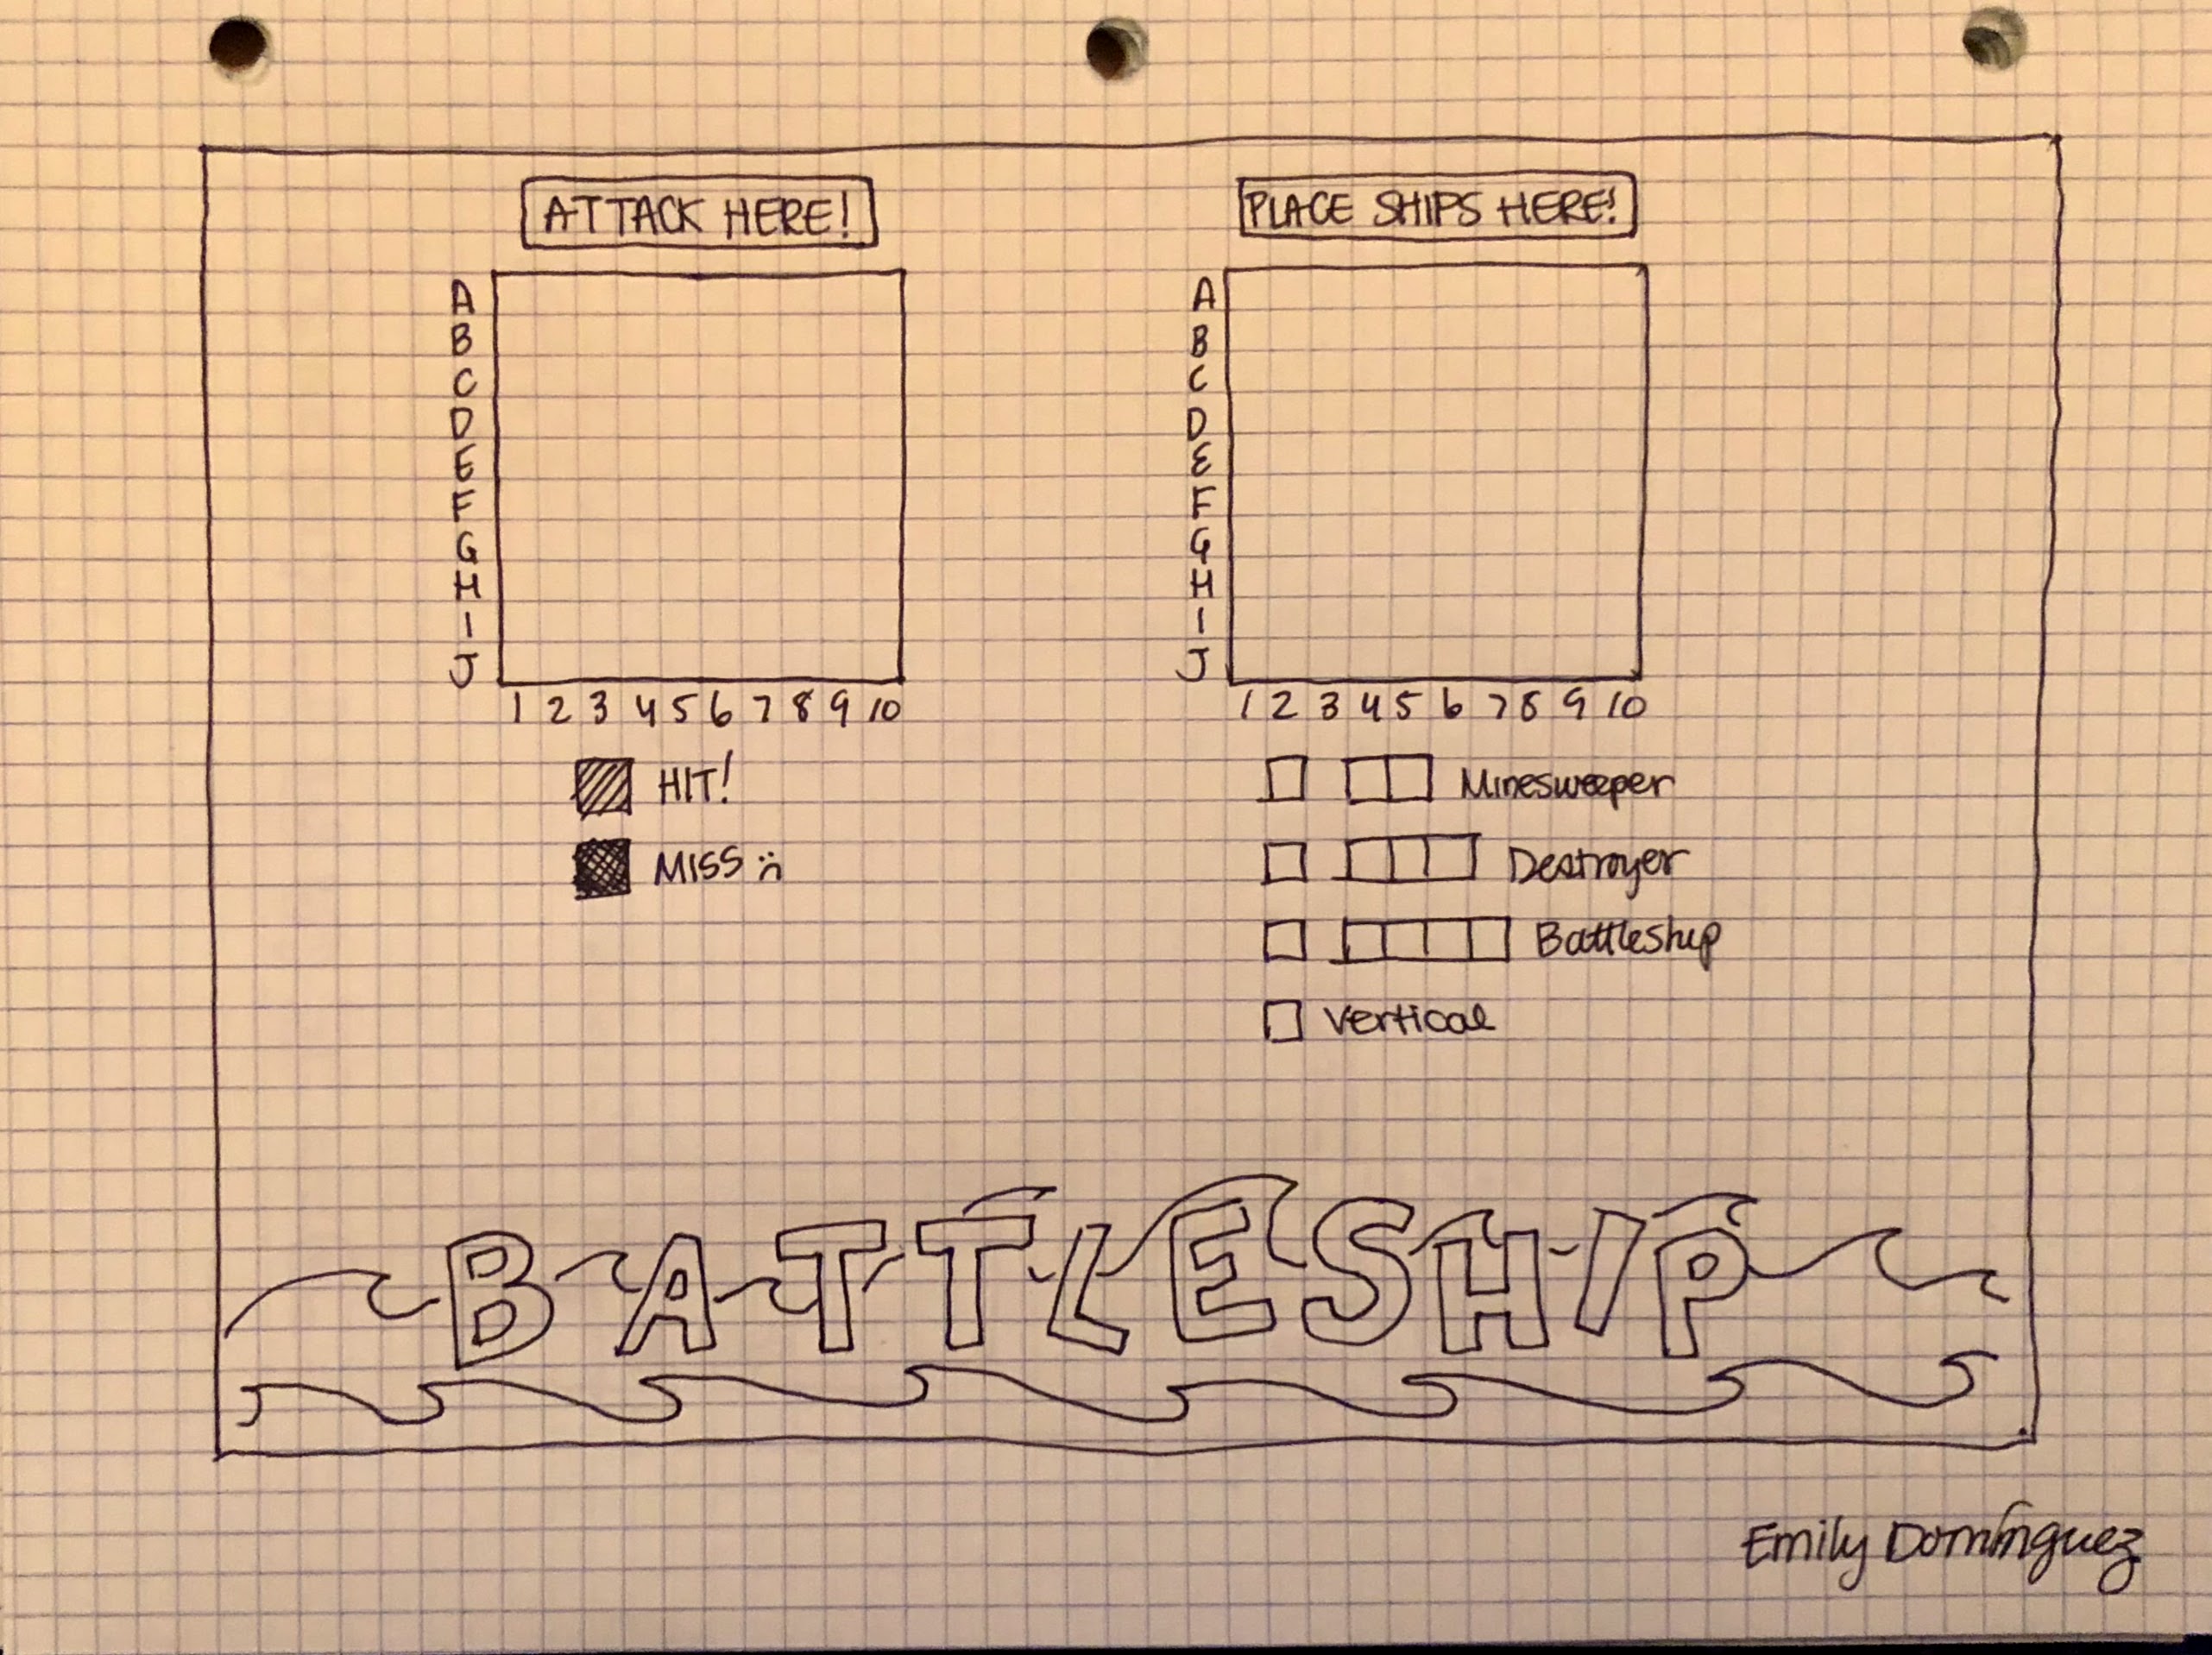 ATTACK HERE!
A
B
C
D
E
F
G
H
I
J
1 2 3 4 5 6 7 8 9 10
HIT!
MISS :(
PLACE SHIPS HERE!
A
B
C
D
E
F
G
H
I
J
1 2 3 4 5 6 7 8 9 10
Minesweeper
Destroyer
Battleship
Vertical
BATTLESHIP
Emily Domínguez